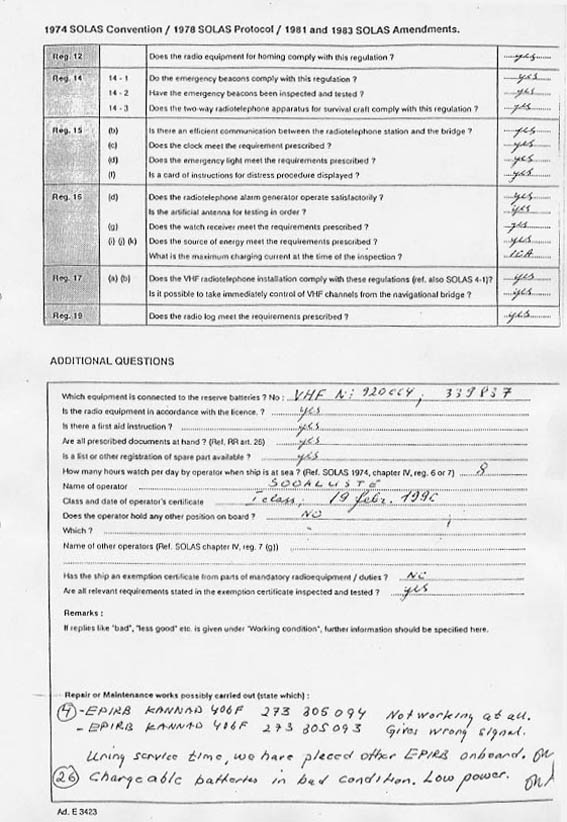 1974 SOLAS Convention / 1978 SOLAS Protocol / 1981 and 1983 SOLAS Amendments.
Reg. 12 Does the radio equipment for homing comply with this regulation ? yes
Reg. 14 14 - 1 Do the emergency beacons comply with this regulation ? yes
14 - 2 Have the emergency beacons been inspected and tested ? yes
14 - 3 Does the two-way radiotelephone apparatus for survival craft comply with this regulation ? yes
Reg. 15 (b) Is there an efficient communication between the radiotelephone station and the bridge ? yes
(c) Does the clock meet the requirement prescribed ? yes
(d) Does the emergency light meet the requirements prescribed ? yes
(f) Is a card of instructions for distress procedure displayed ? yes
Reg. 16 (d) Does the radiotelephone alarm generator operate satisfactorily ? yes
Is the artificial antenna for testing in order ? yes
(g) Does the watch receiver meet the requirements prescribed ? yes
(i) (j) (k) Does the source of energy meet the requirements prescribed ? yes
What is the maximum charging current at the time of the inspection ?
Reg. 17 (a) (b) Does the VHF radiotelephone installation comply with these regulations (ref. also SOLAS 4-1)? yes
Is it possible to take immediately control of VHF channels from the navigational bridge ? yes
Reg. 19 Does the radio log meet the requirements prescribed ? yes
ADDITIONAL QUESTIONS
Which equipment is connected to the reserve batteries ? No : VHF N: 339837
Is the radio equipment in accordance with the licence. ? yes
Is there a first aid instruction ? yes
Are all prescribed documents at hand ? (Ref. RR art. 26) yes
Is a list or other registration of spare part available ? yes
How many hours watch per day by operator when ship is at sea ? (Ref. SOLAS 1974, chapter IV, reg. 6 or 7) 8
Name of operator
Class and date of operator's certificate I class, 19 febr. 1996
Does the operator hold any other position on board ? NO
Which ? -
Name of other operators (Ref. SOLAS chapter IV, reg. 7 (g))
Has the ship an exemption certificate from parts of mandatory radioequipment / duties ? NO
Are all relevant requirements stated in the exemption certificate inspected and tested ? yes
Remarks :
If replies like "bad", "less good" etc. is given under "Working condition", further information should be specified here.
Repair or Maintenance works possibly carried out (state which) :
4 - EPIRB KANNAD 406F 273 305 094 Not working at all.
- EPIRB KANNAD 406F 273 305093 Gives wrong signal.
service time, we have placed other EPIRB onboard.
26 Chargeable batteries in bad condition. Low power.
Ad. E 3423